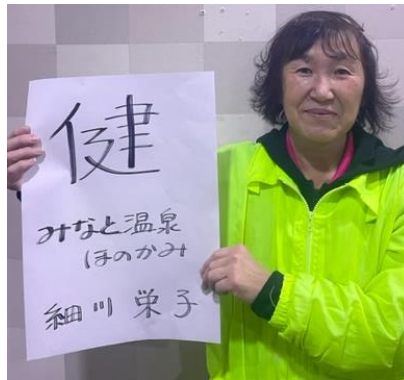 健
みなと温泉
ほのかみ
細川 栄子